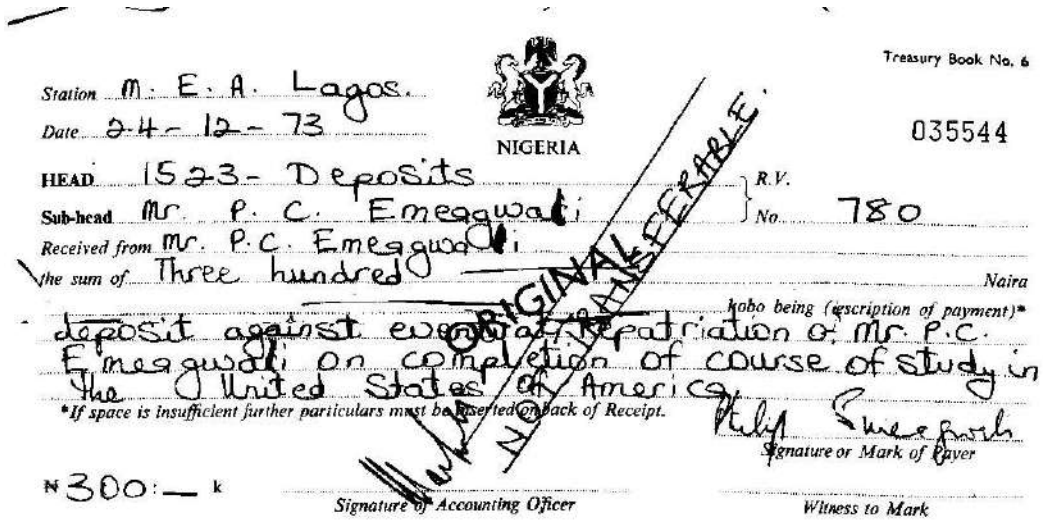 Treasury Book No. 6
Station M. E. A. Lagos.
Date 24-12-73
035544
NIGERIA
HEAD 1523- Deposits
R.V.
Sub-head Mr. P. C. Emeagwali
No 780
Received from Mr. P.C. Emeagwali
the sum of Three hundred Naira
kobo being (description of payment)*
deposit against eventual repatriation of Mr. P.C.
Emeagwali on completion of course of study in
the United States of America
*If space is insufficient further particulars must be inserted on back of Receipt.
ORIGINAL
NOT TRANSFERABLE.
Philip Emeagwali
Signature or Mark of Payer
₦300:— k
Signature of Accounting Officer
Witness to Mark